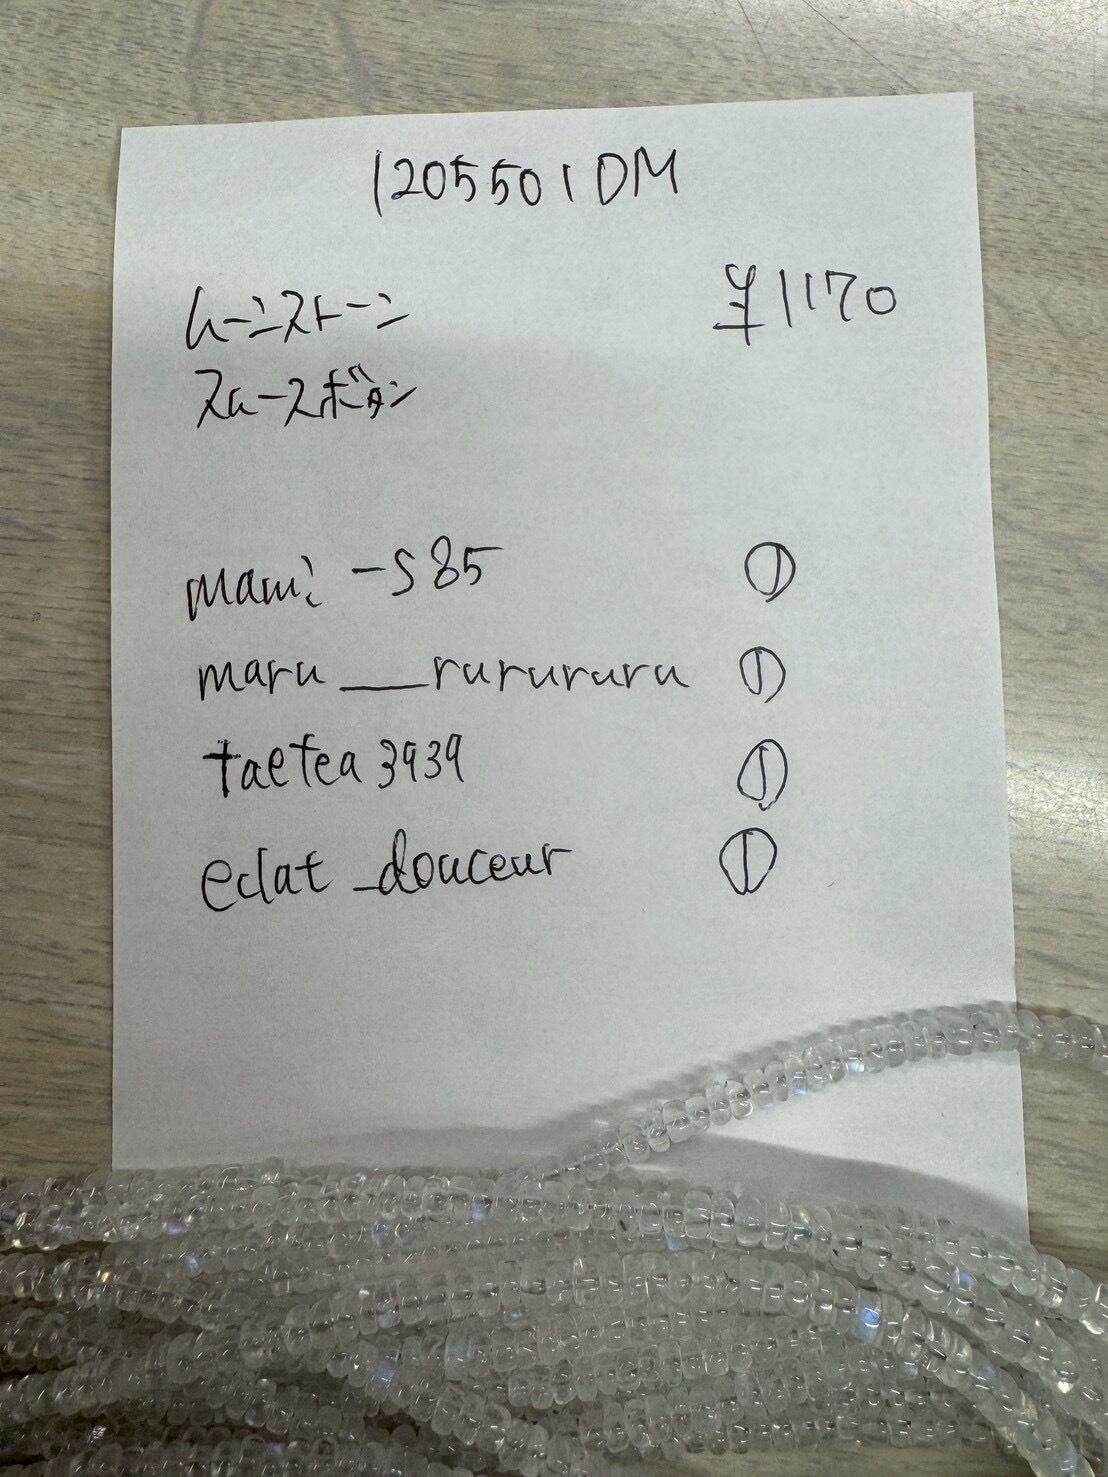 1205501DM
ムーンストーン ¥1170
スムースボタン
mami-s85 ①
maru__rurururu ①
taetea3939 ①
eclat_douceur ①